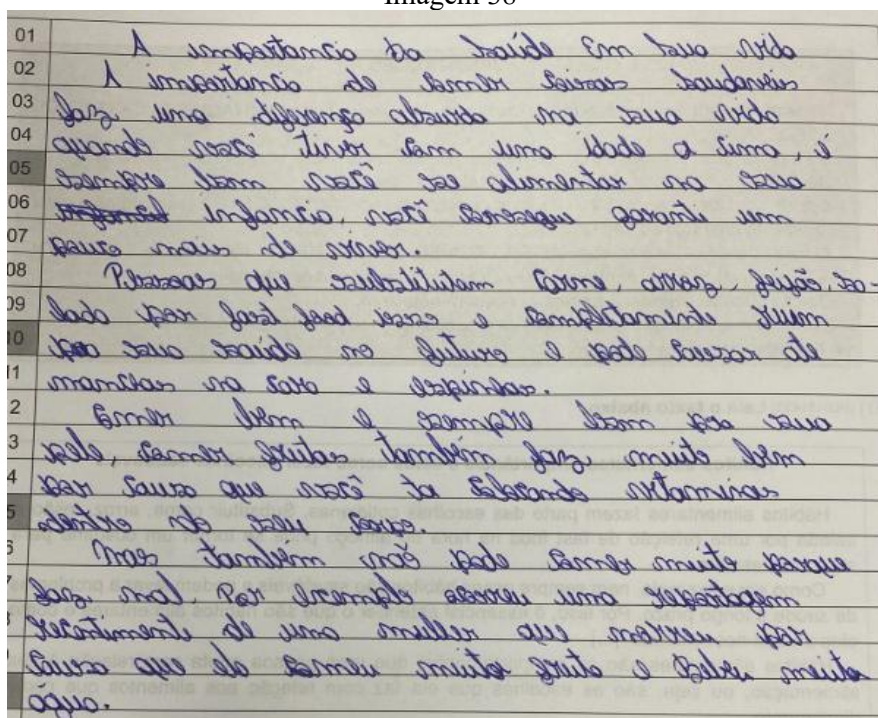 Imagem 58
01 A importancia da Saúde Em Sua vida
02 A importancia de comer coisas saudaveis
03 faz uma diferença absurda na sua vida
04 quando você tiver com uma idade a cima, é
05 sempre bom você se alimentar na sua
06 infancia, você consegue garanti um
07 pouco mais de viver.
08 Pessoas que substituem carne, arroz, feijão, sa-
09 lada por fast food isso e completamente ruim
10 pra sua saúde no futuro e pode causar até
11 manchas na cara e espinhas.
2 Comer bem e sempre bom pra sua
3 pele, comer frutas também faz muito bem
4 por causa que você ta colocando vitaminas
5 dentro do seu corpo.
6 Mas também não pode comer muito porque
7 faz mal Por exemplo ocorreu uma reportagem
8 recentimente de uma mulher que morreu por
causa que ela comeu muita fruta e Bebeu muita
água.